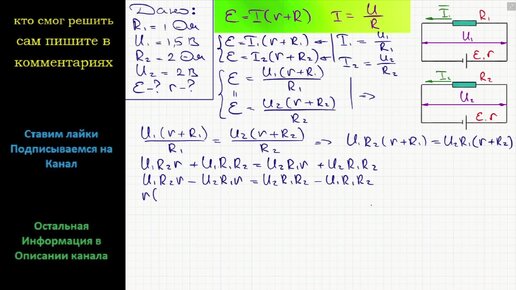 кто смог решить
сам пишите в
комментариях
Ставим лайки
Подписываемся на
Канал
Остальная
Информация в
Описании канала
Дано:
R₁ = 1 Ом
U₁ = 1,5 В
R₂ = 2 Ом
U₂ = 2 В
ε-? r-?
ε = I(r+R) I = U/R
ε = I₁(r+R₁) I₁ = U₁/R₁
ε = I₂(r+R₂) I₂ = U₂/R₂
ε = U₁(r+R₁)/R₁ =>
"
ε = U₂(r+R₂)/R₂
U₁(r+R₁)/R₁ = U₂(r+R₂)/R₂ => U₁R₂(r+R₁) = U₂R₁(r+R₂)
U₁R₂r + U₁R₁R₂ = U₂R₁r + U₂R₁R₂
U₁R₂r - U₂R₁r = U₂R₁R₂ - U₁R₁R₂
r(
I₁ R₁
U₁
ε, r
I₂ R₂
U₂
ε, r